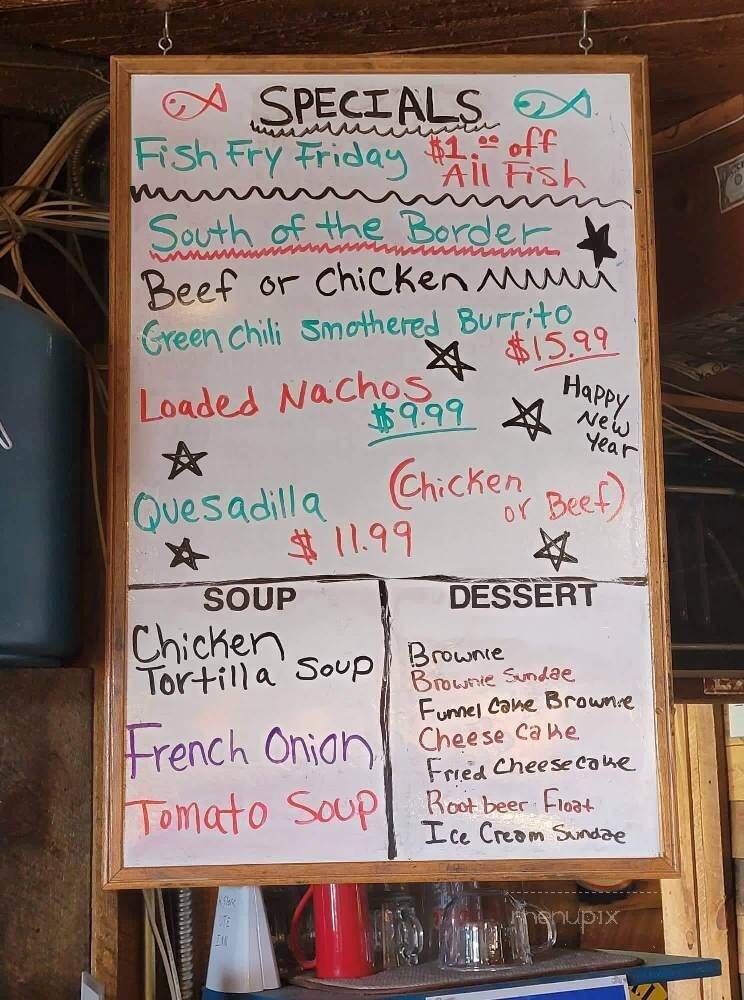 SPECIALS
Fish Fry Friday $1.00 off
All Fish
South of the Border
Beef or Chicken
Green Chili Smothered Burrito
$15.99
Loaded Nachos
$9.99
Happy
New
Year
Quesadilla (Chicken
or Beef)
$11.99
SOUP
Chicken
Tortilla Soup
French Onion
Tomato Soup
DESSERT
Brownie
Brownie Sundae
Funnel Cake Brownie
Cheese Cake
Fried Cheesecake
Rootbeer Float
Ice Cream Sundae
menupix